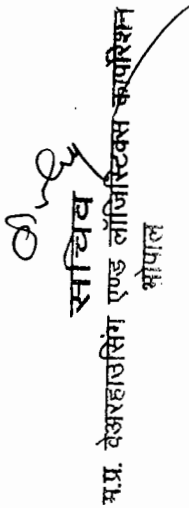 म.प्र. वेअरहाउसिंग एण्ड लॉजिस्टिक्स कार्पोरेशन
भोपाल